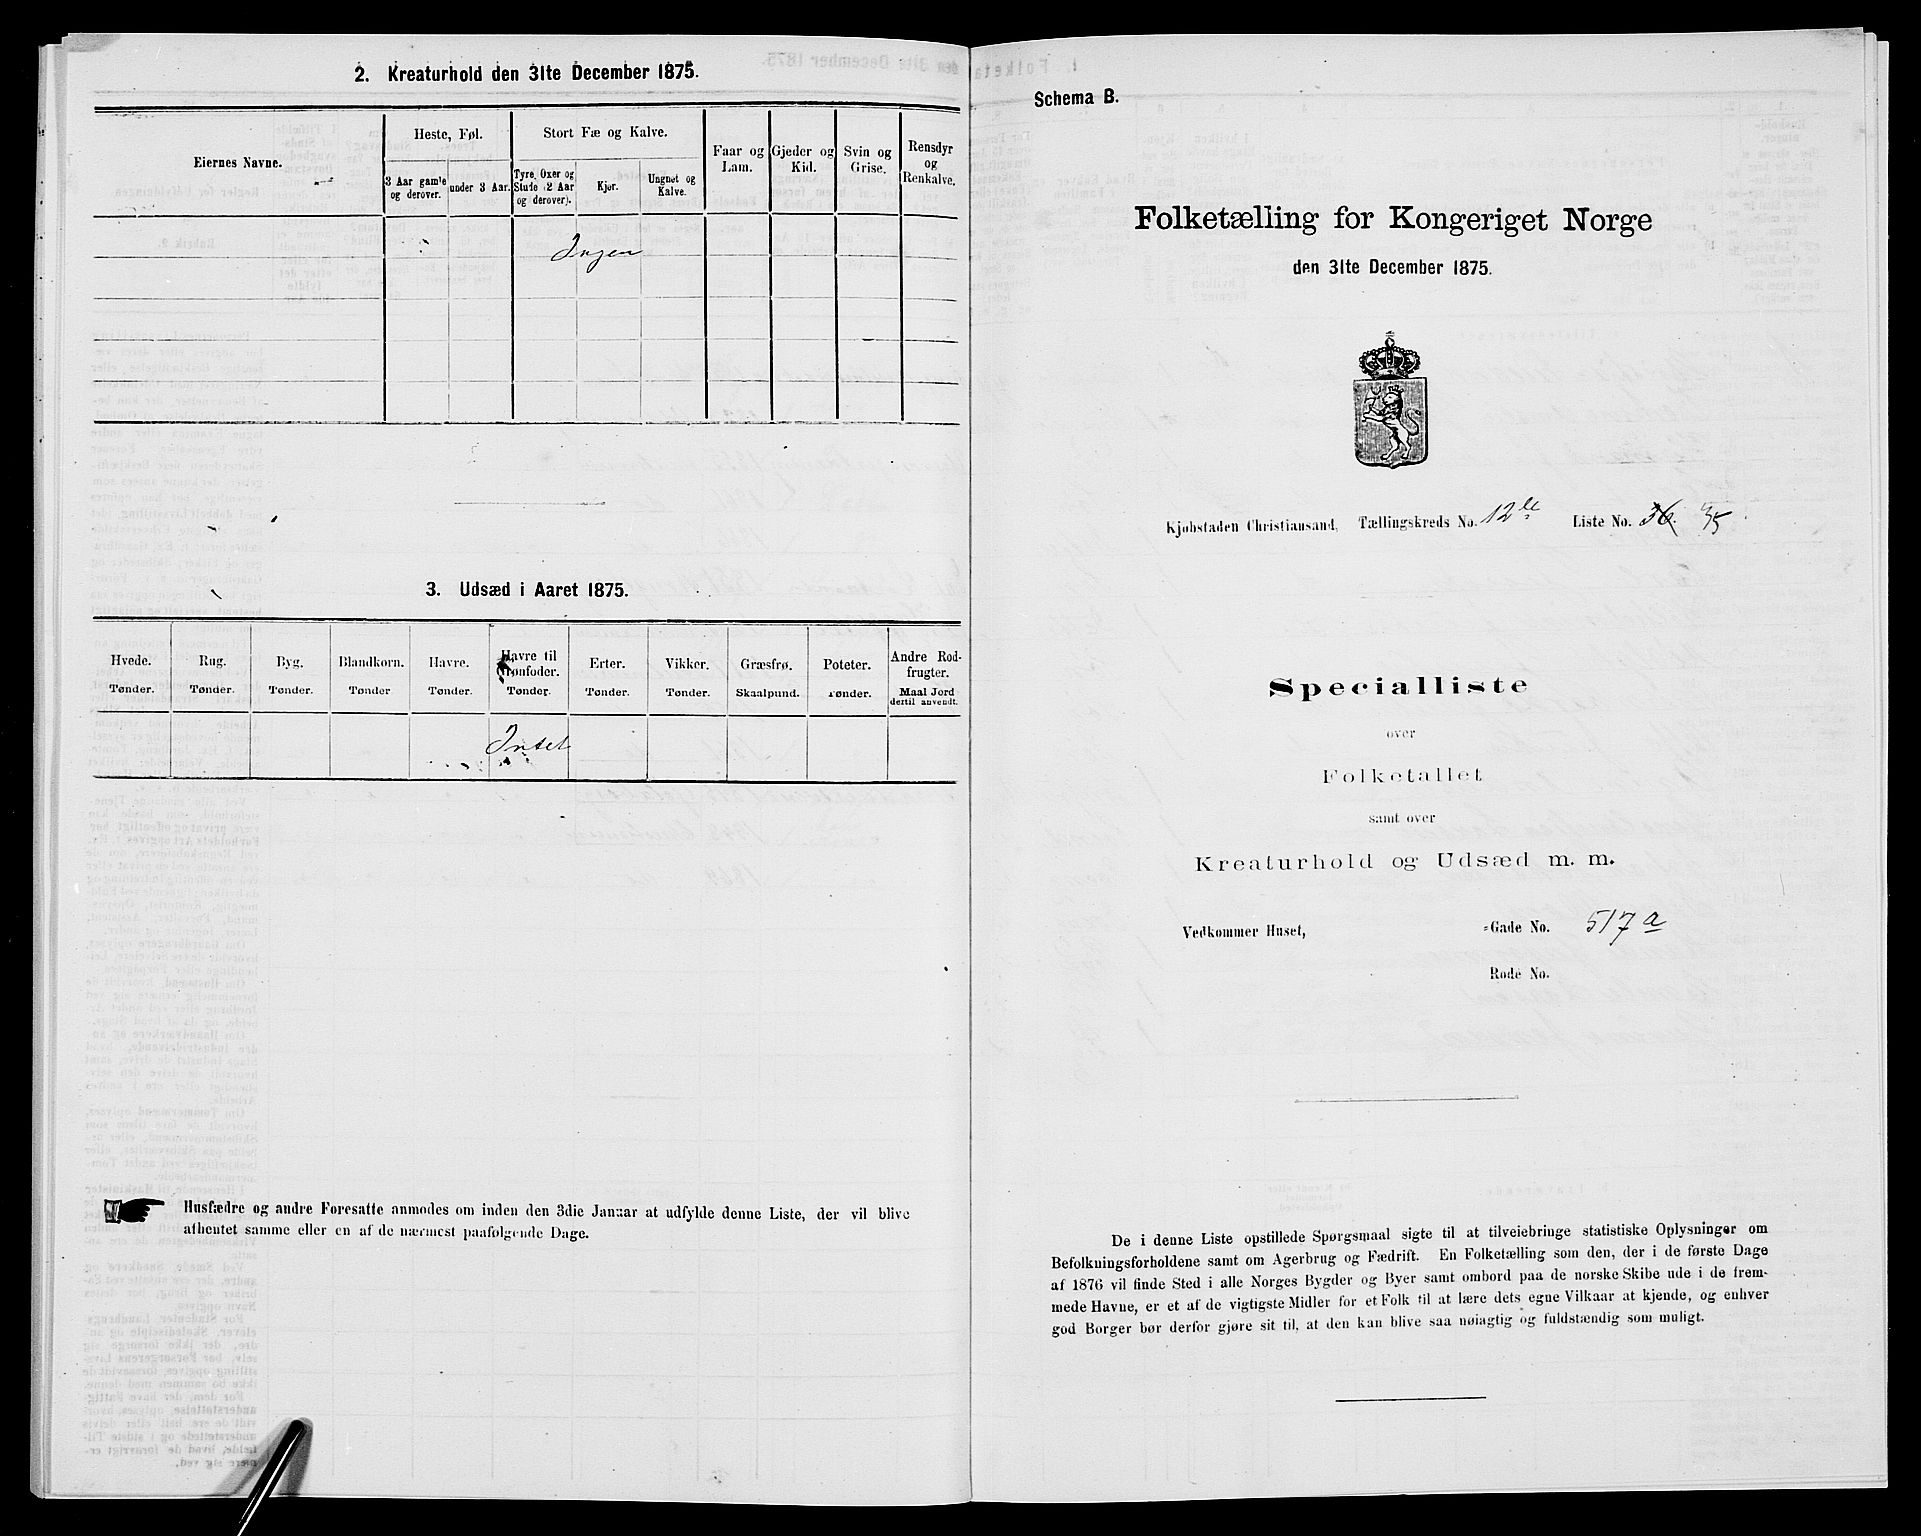 2. Kreaturhold den 31te December 1875.
Eiernes Navne.
Heste, Føl.
3 Aar gamle og derover.
under 3 Aar.
Stort Fæ og Kalve.
Tyre, Oxer og Stude (2 Aar og derover).
Kjør.
Ungnet og Kalve.
Faar og Lam.
Gjeder og Kid.
Svin og Grise.
Rensdyr og Renkalve.
Ingen
3. Udsæd i Aaret 1875.
Hvede. Rug. Byg. Blandkorn. Havre. Havre til Grønfoder. Erter. Vikker. Græsfrø. Poteter. Andre Rodfrugter.
Tønder. Tønder. Tønder. Tønder Tønder. Tønder Tønder. Tønder. Skaalpund. Tønder. Maal Jord dertil anvendt.
Intet
Husfædre og andre Foresatte anmodes om inden den 3die Januar at udfylde denne Liste, der vil blive
afhentet samme eller en af de nærmest paafølgende Dage.
Schema B.
Folketælling for Kongeriget Norge
den 31te December 1875.
Kjøbstaden Christiansand, Tællingskreds No. 12te Liste No. 36. 35
Specialliste
over
Folketallet
samt over
Kreaturhold og Udsæd m. m.
Vedkommer Huset, -Gade No. 517a
Rode No.
De i denne Liste opstillede Spørgsmaal sigte til at tilveiebringe statistiske Oplysninger om
Befolkningsforholdene samt om Agerbrug og Fædrift. En Folketælling som den, der i de første Dage
af 1876 vil finde Sted i alle Norges Bygder og Byer samt ombord paa de norske Skibe ude i de frem-
mede Havne, er et af de vigtigste Midler for et Folk til at lære dets egne Vilkaar at kjende, og enhver
god Borger bør derfor gjøre sit til, at den kan blive saa nøiagtig og fuldstændig som muligt.